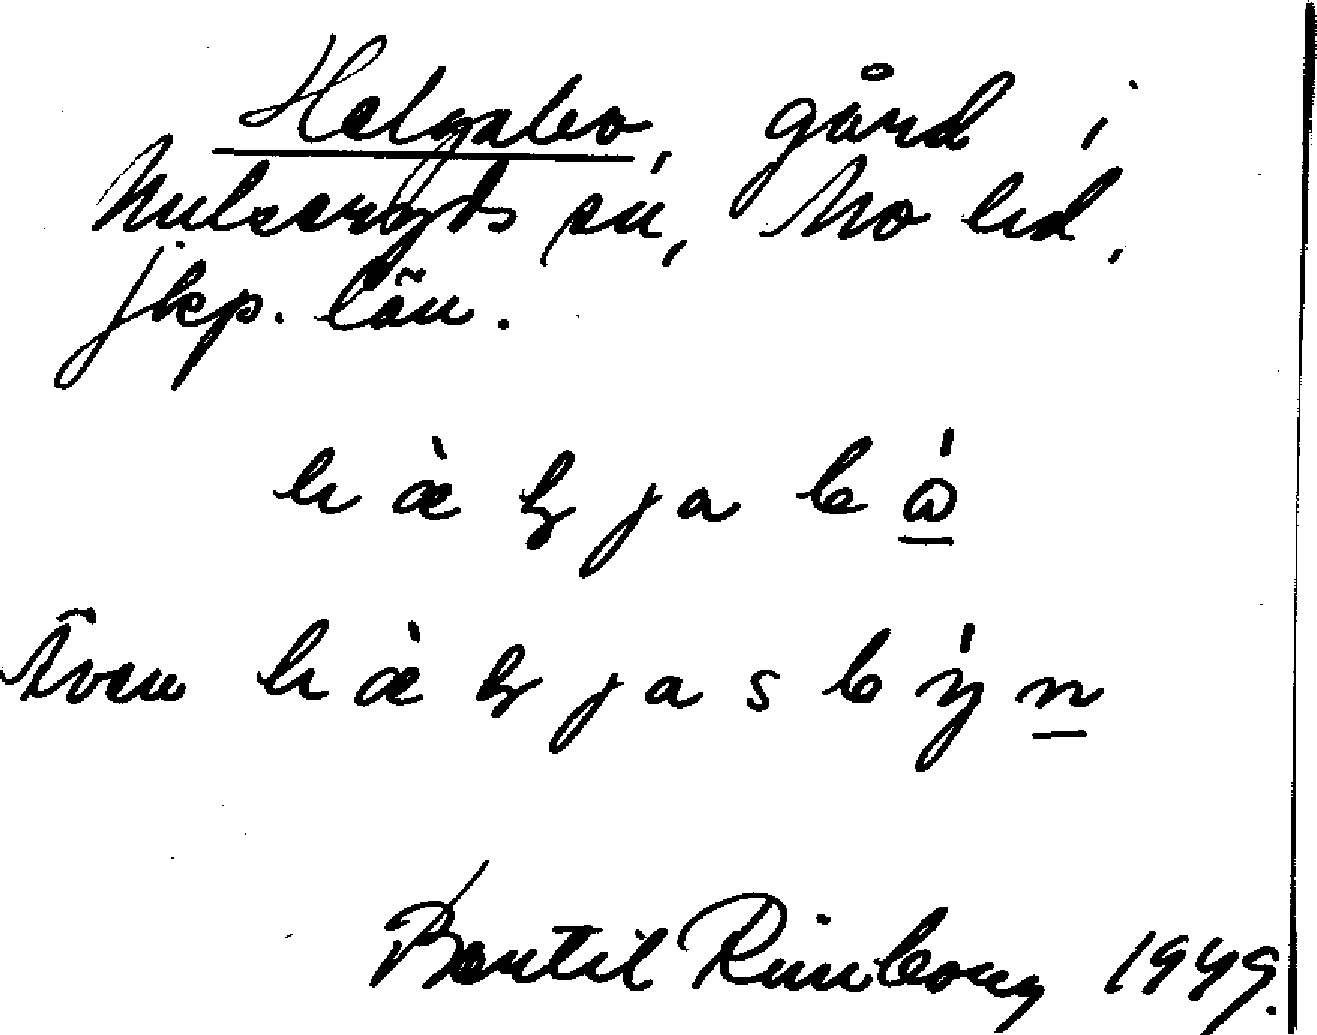 Helgabo, gård i
Hulseryds sn, Mo hd,
Jkp. län.
h æ̀ l j a b ó
Även h æ̀ l j a s b ý n
Bertil Rimborg 1949.